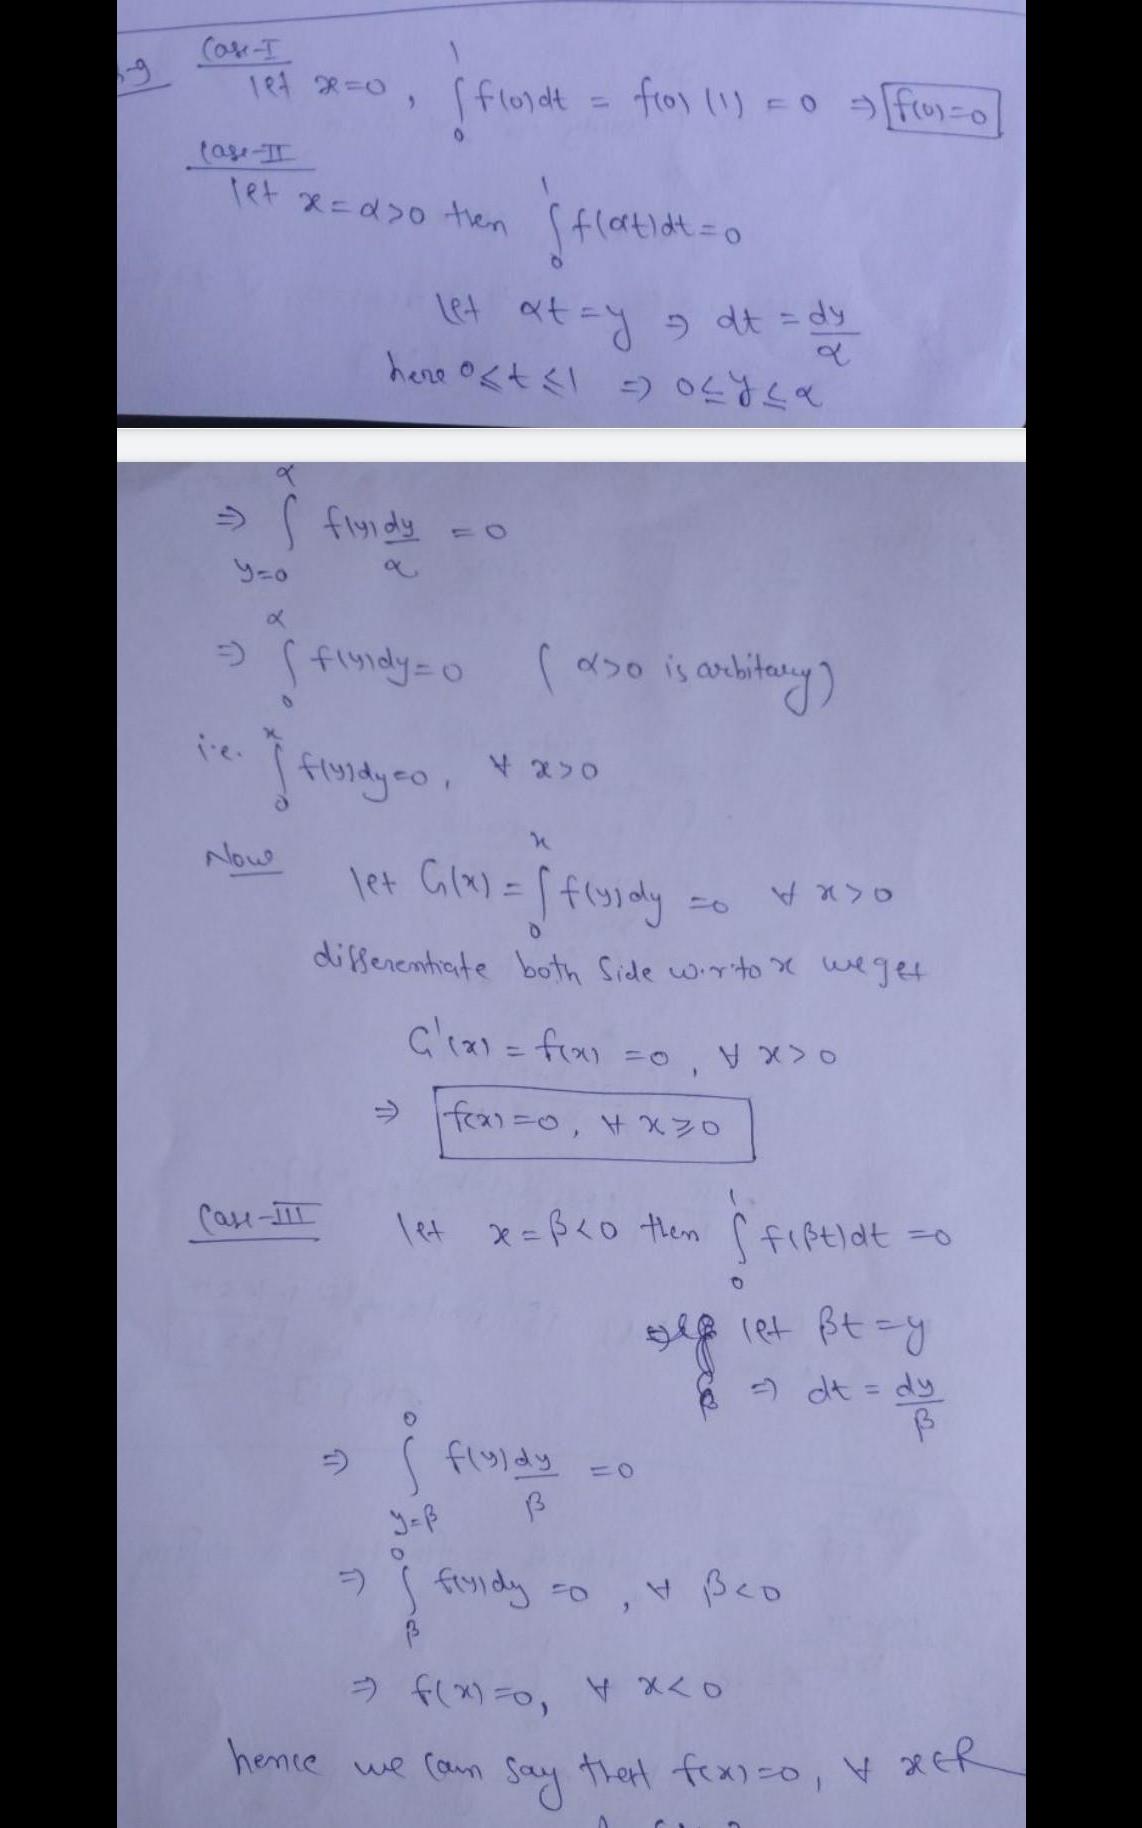 Case-I
let x=0, ∫₀¹ f(0)dt = f(0) (1) = 0 ⇒ f(0)=0
Case-II
let x=α>0 then ∫₀¹ f(αt)dt=0
let αt=y ⇒ dt = dy/α
here 0≤t≤1 ⇒ 0≤y≤α
⇒ ∫_{y=0}^{α} f(y) dy/α = 0
⇒ ∫₀^α f(y)dy=0 (α>0 is arbitary)
i.e. ∫₀^x f(y)dy=0, ∀ x>0
Now let G(x) = ∫₀^x f(y)dy =0 ∀ x>0
differentiate both side w.r.to x we get
G'(x) = f(x) =0, ∀ x>0
⇒ f(x)=0, ∀ x≥0
Case-III let x=β<0 then ∫₀¹ f(βt)dt =0
let βt=y
⇒ dt = dy/β
⇒ ∫_{y=β}^{0} f(y) dy/β =0
⇒ ∫_β^0 f(y)dy =0, ∀ β<0
⇒ f(x)=0, ∀ x<0
hence we can say that f(x)=0, ∀ x∈R